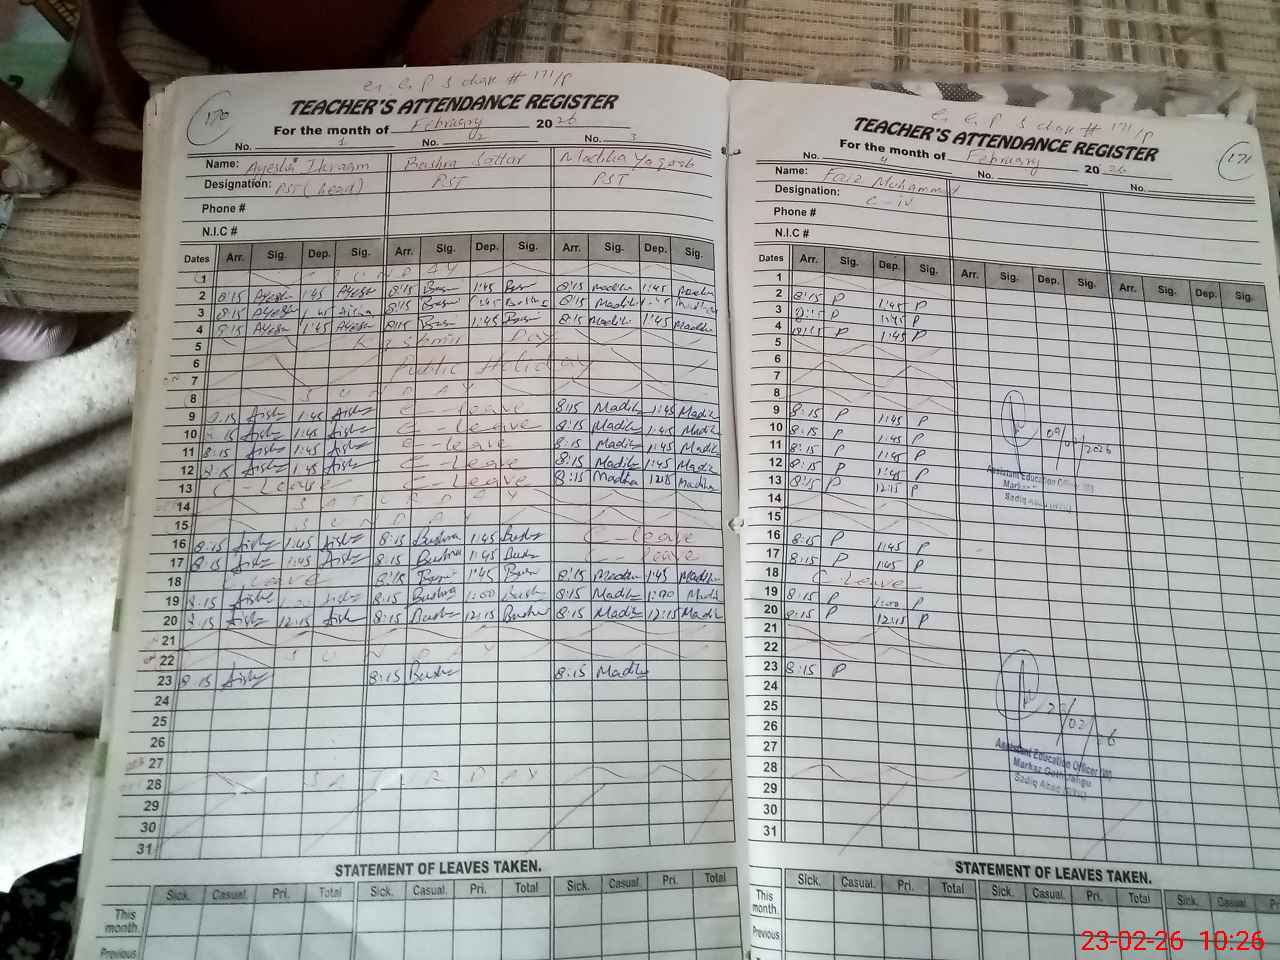 170
G. G. P S chak # 171/P
TEACHER'S ATTENDANCE REGISTER
For the month of February 2026
No. 1 No. 02 No. 3
Name: Ayesha Ikraam Bushra Sattar Madiha Yaqoob
Designation: PST (head) PST PST
Phone #
N.I.C #
Dates Arr. Sig. Dep. Sig. Arr. Sig. Dep. Sig. Arr. Sig. Dep. Sig.
1 SUNDAY
2 8:15 Ayesha 1:45 Ayesha 8:15 1:45 8:15 Madiha 1:45 Madiha
3 8:15 Ayesha 1:45 Aisha 8:15 1:45 Bushra 8:15 Madiha 1:45 Madiha
4 8:15 Ayesha 1:45 Ayesha 8:15 1:45 8:15 Madiha 1:45 Madiha
5 Kashmir Day
6 Public Holiday
7
8 SUNDAY
9 8:15 Aisha 1:45 Aisha C-leave 8:15 Madiha 1:45 Madiha
10 8:15 Aisha 1:45 Aisha C-leave 8:15 Madiha 1:45 Madiha
11 8:15 Aisha 1:45 Aisha C-leave 8:15 Madiha 1:45 Madiha
12 8:15 Aisha 1:45 Aisha C-Leave 8:15 Madiha 1:45 Madiha
13 C-Leave C-Leave 8:15 Madiha 12:15 Madiha
14 SATURDAY
15 SUNDAY
16 8:15 Aisha 1:45 Aisha 8:15 Bushra 1:45 Bushra C-leave
17 8:15 Aisha 1:45 Aisha 8:15 Bushra 1:45 Bushra C-leave
18 Leave 8:15 1:45 8:15 Madiha 1:45 Madiha
19 8:15 Aisha Aisha 8:15 Bushra 1:00 Bushra 8:15 Madiha 1:00 Madiha
20 8:15 Aisha 12:15 Aisha 8:15 Bushra 12:15 Bushra 8:15 Madiha 12:15 Madiha
21
22 SUNDAY
23 8:15 Aisha 8:15 Bushra 8:15 Madiha
24
25
26
27
28 SATURDAY
29
30
31
STATEMENT OF LEAVES TAKEN.
Sick. Casual. Pri. Total Sick. Casual. Pri. Total Sick. Casual. Pri. Total
This month.
Previous
171
G. G. P S chak # 171/P
TEACHER'S ATTENDANCE REGISTER
For the month of February 2026
No. 4 No. No.
Name: Faiz Muhammad
Designation: C-iv
Phone #
N.I.C #
Dates Arr. Sig. Dep. Sig. Arr. Sig. Dep. Sig. Arr. Sig. Dep. Sig.
1
2 8:15 P 1:45 P
3 8:15 P 1:45 P
4 8:15 P 1:45 P
5
6
7
8
9 8:15 P 1:45 P
10 8:15 P 1:45 P
11 8:15 P 1:45 P
12 8:15 P 1:45 P
13 8:15 P 12:15 P
14
15
16 8:15 P 1:45 P
17 8:15 P 1:45 P
18 C-Leave
19 8:15 P 1:00 P
20 8:15 P 12:15 P
21
22
23 8:15 P
24
25
26
27
28
29
30
31
09/02/2026
Assistant Education Officer
Markaz
Sadiq Abad
23/02/26
Assistant Education Officer
Markaz
Sadiq Abad
STATEMENT OF LEAVES TAKEN.
Sick. Casual. Pri. Total Sick. Casual. Pri. Total Sick. Casual
This month.
Previous
23-02-26 10:26